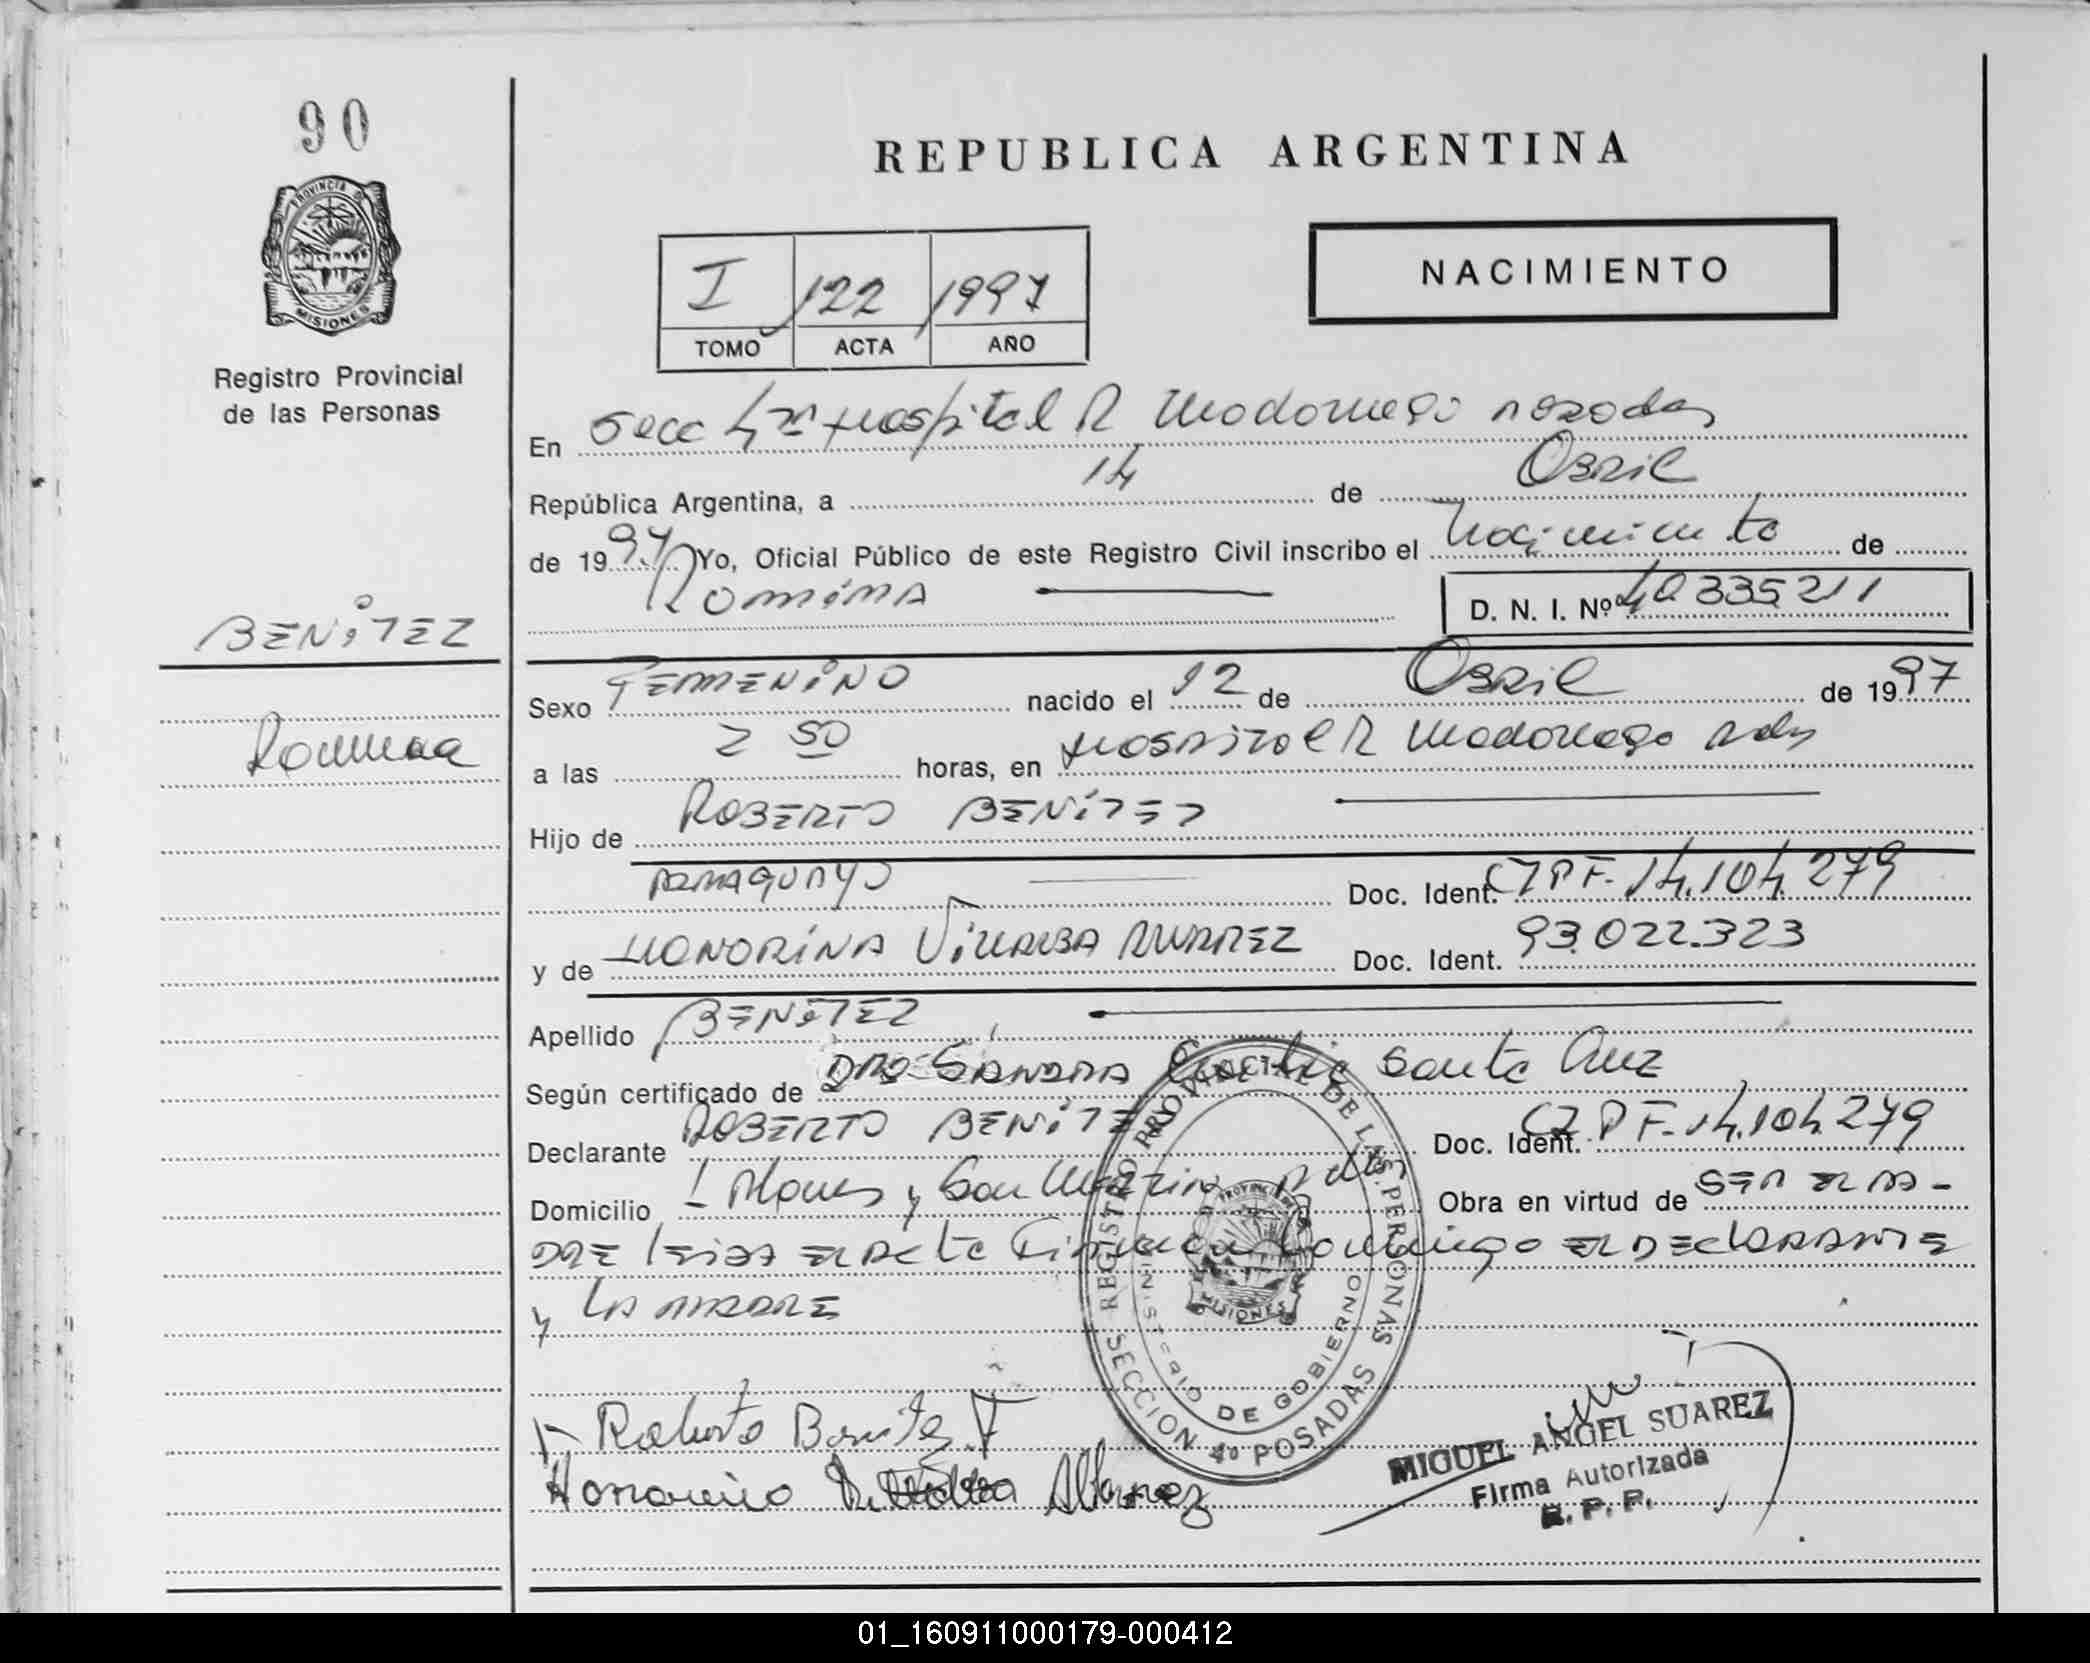 90
PROVINCIA DE
MISIONES
Registro Provincial
de las Personas
BENITEZ
Romina
REPUBLICA ARGENTINA
I 122 1997
TOMO ACTA AÑO
NACIMIENTO
En Secc 4ta Hospital R Madariaga Posadas
República Argentina, a 14 de Abril
de 1997 Yo, Oficial Público de este Registro Civil inscribo el Nacimiento de
Romina D. N. I. Nº 40.335.211
Sexo FEMENINO nacido el 12 de Abril de 1997
a las 2 50 horas, en Hospital R Madariaga Pdas
Hijo de ROBERTO BENITEZ
PARAGUAYO Doc. Ident. CIPF. 14.104.279
y de HONORINA VILLALBA ALVAREZ Doc. Ident. 93.022.323
Apellido BENITEZ
Según certificado de DRA SANDRA Santa Cruz
Declarante ROBERTO BENITEZ Doc. Ident. CIPF. 14.104.279
Domicilio y San Martin Pdas Obra en virtud de SER EL PA-
DRE leida EL ACTA Firman Conmigo EL DECLARANTE
y LA MADRE
REGISTRO PROVINCIAL DE LAS PERSONAS
SECCION 4ª POSADAS
MINISTERIO DE GOBIERNO
PROVINCIA DE
MISIONES
Roberto Benitez
Honorina Villalba Alvarez
MIGUEL ANGEL SUAREZ
Firma Autorizada
R. P. P.
01_160911000179-000412